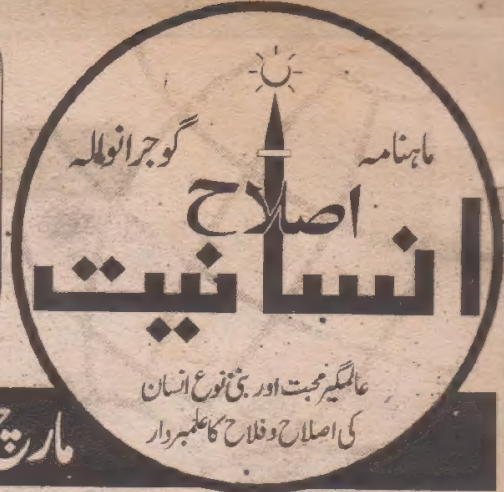 ماہنامہ گوجرانوالہ
اصلاح
انسانیت
عالمگیر محبت اور بنی نوع انسان
کی اصلاح و فلاح کا علمبردار
مارچ